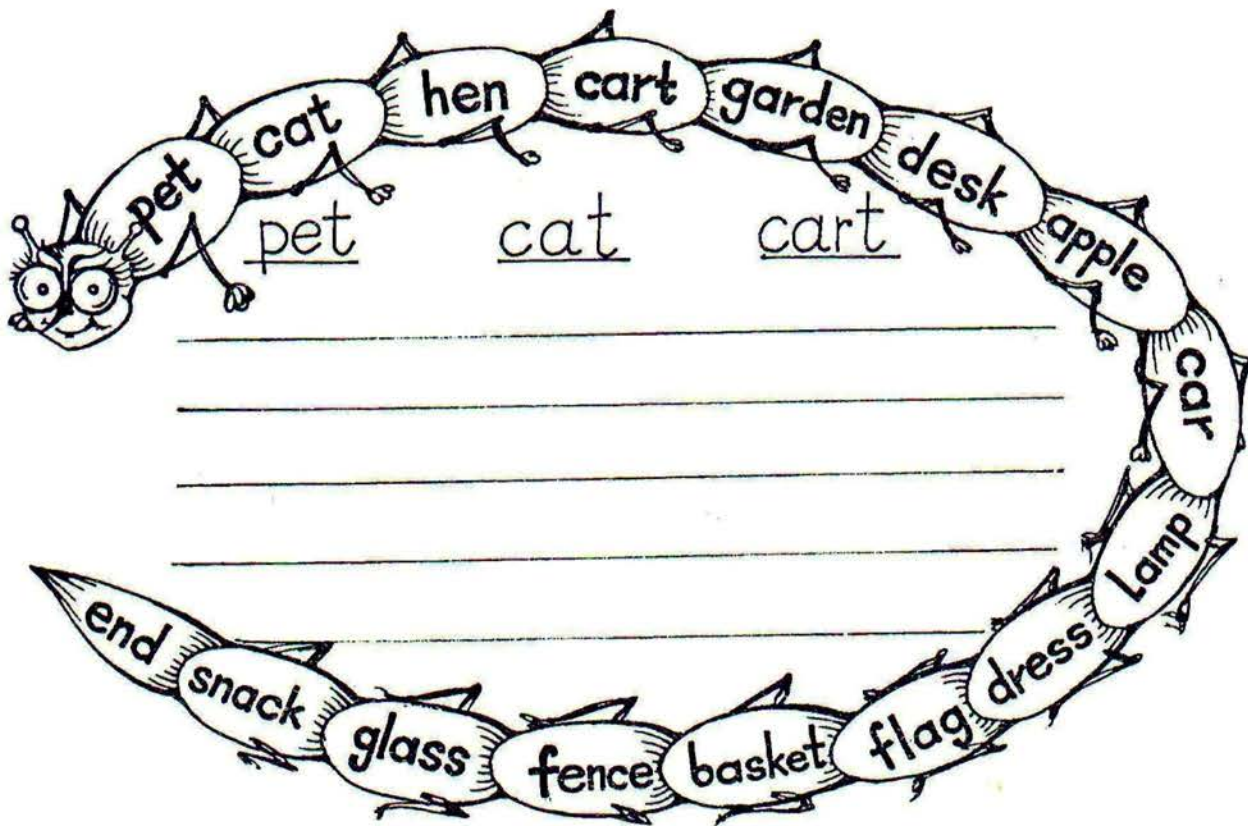 pet
cat
hen
cart
garden
desk
apple
car
lamp
dress
flag
basket
fence
glass
snack
end
pet cat cart